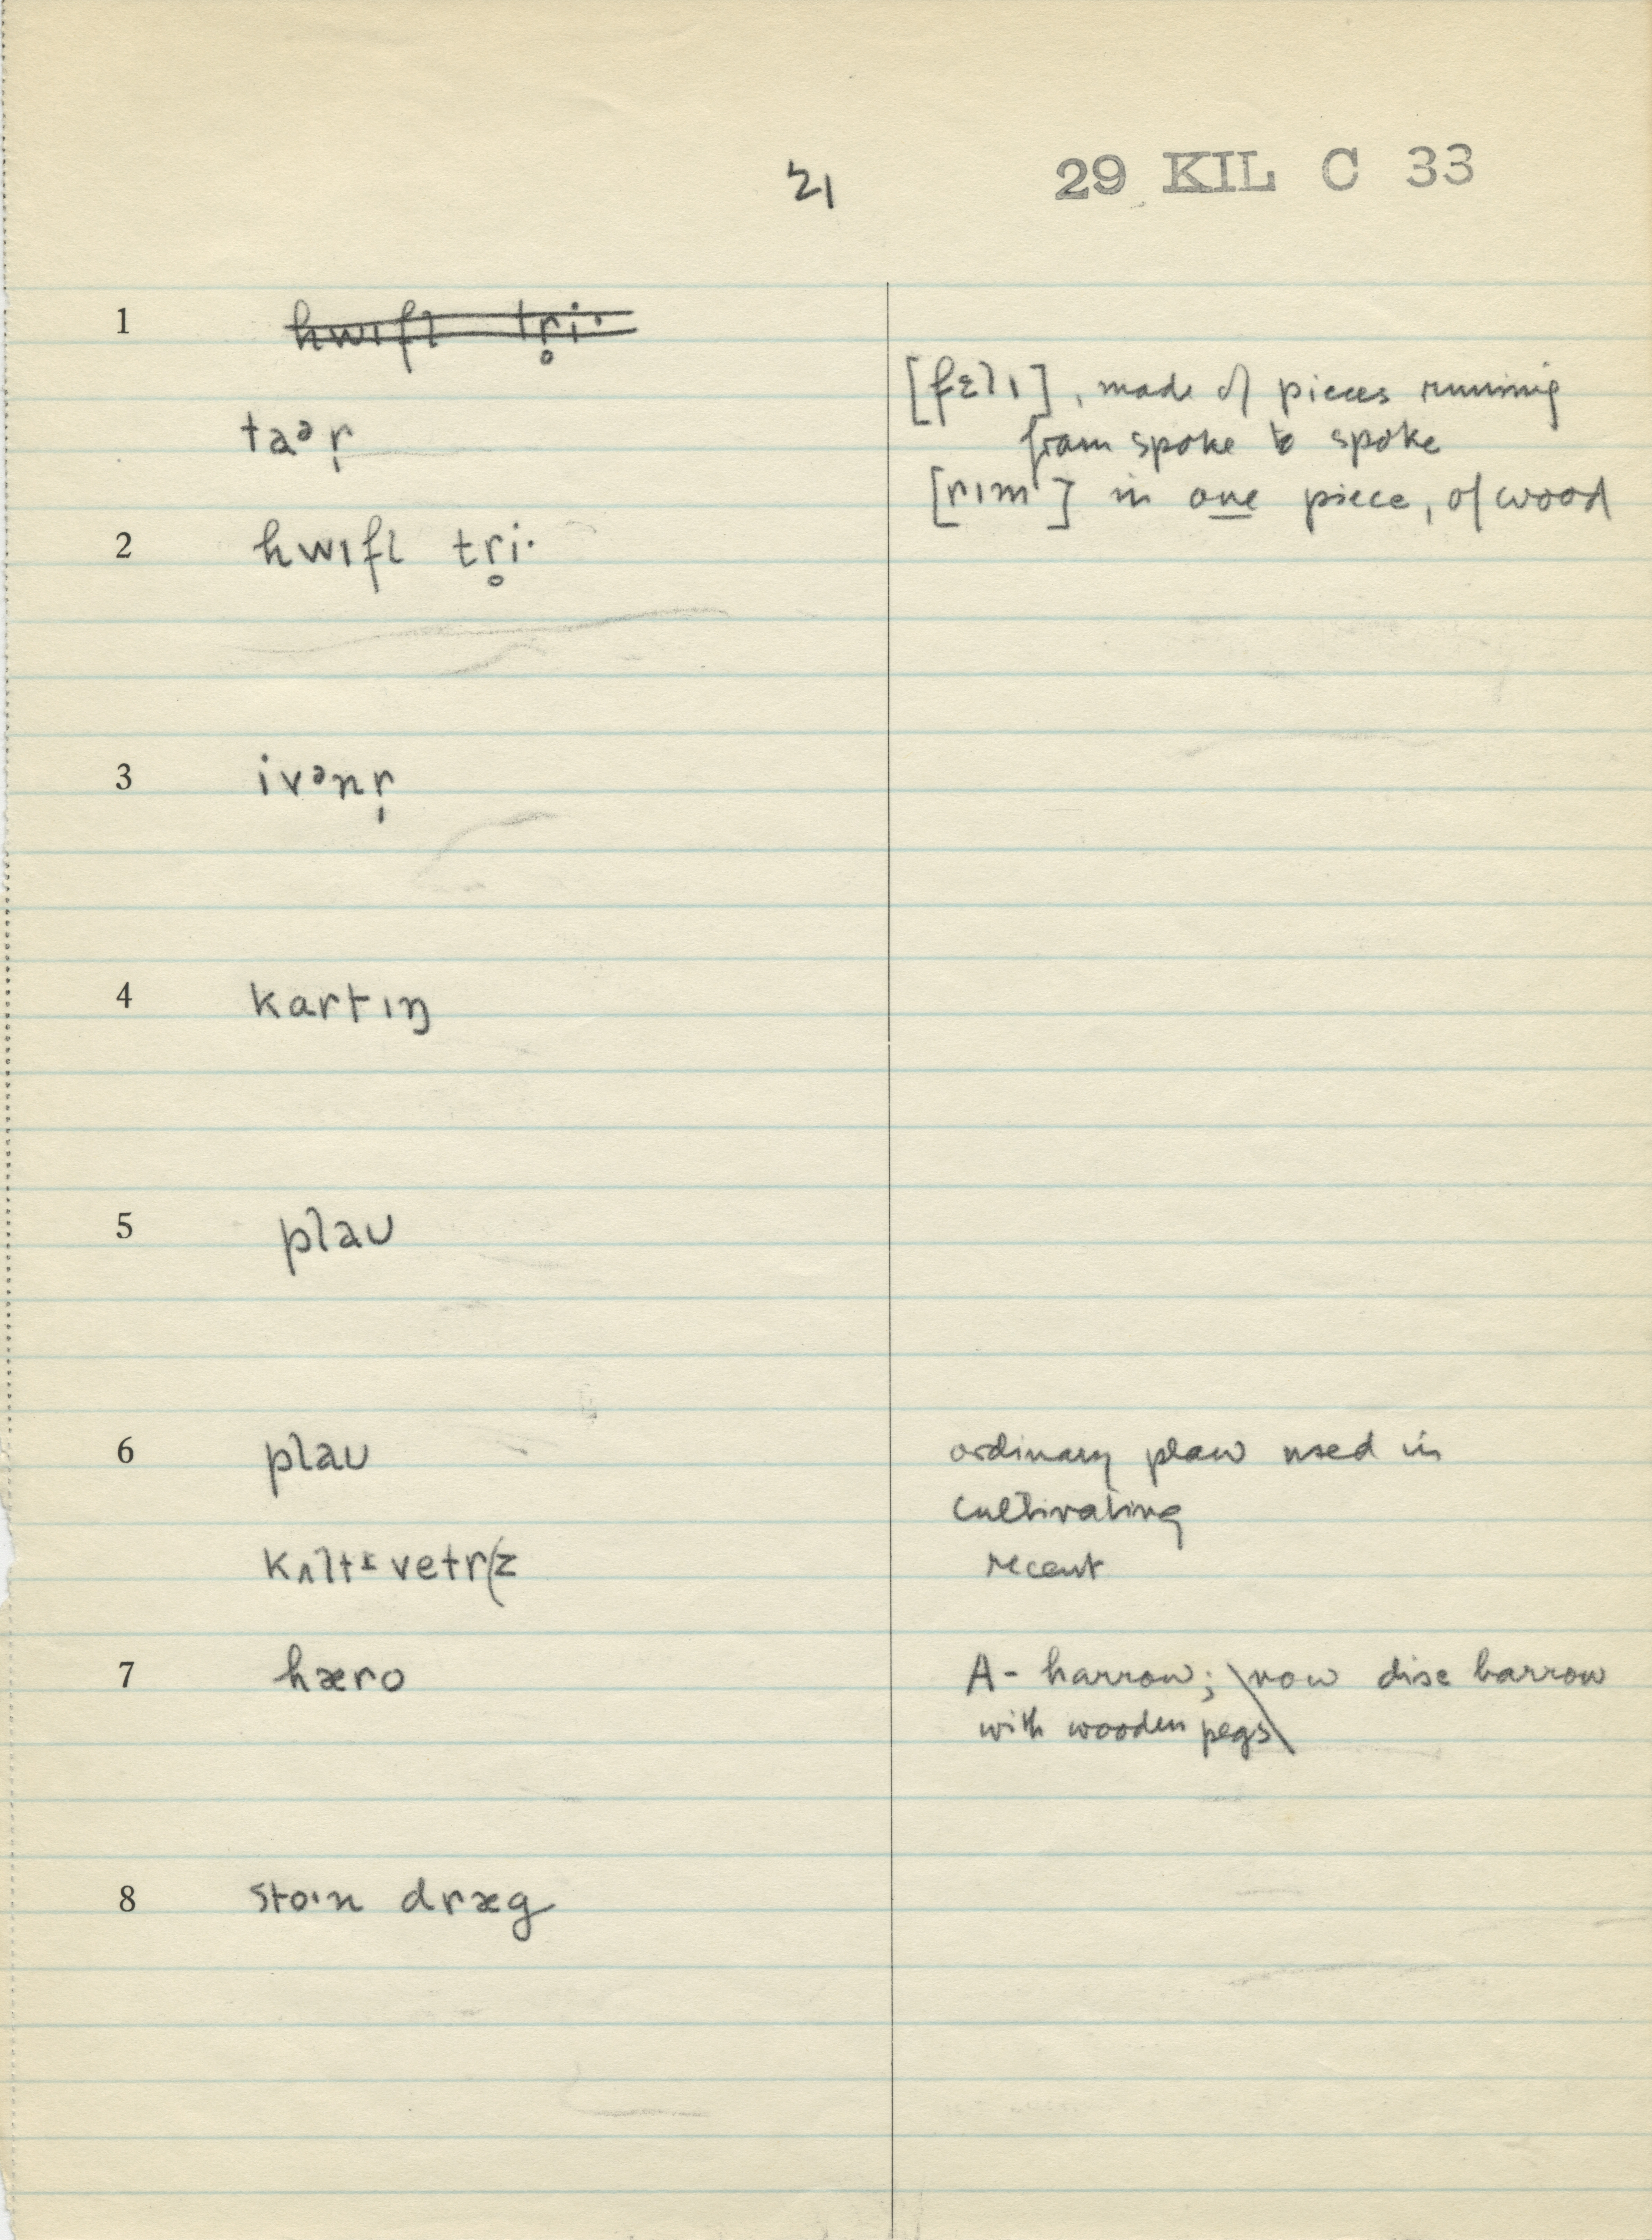 21 29 KIL C 33
1 hwɪfl tr̥i·
[fɛlɪ], made of pieces running
taᵊr̩ from spoke to spoke
[rɪm] in one piece, of wood
2 hwɪfl tr̥i·
3 ivᵊnr̩
4 kartɪŋ
5 plaʊ
6 plaʊ ordinary plow used in
cultivating
kʌltᵻvetr(z recent
7 hæro A- harrow; \now disc harrow
with wooden pegs\
8 sto·n dræg